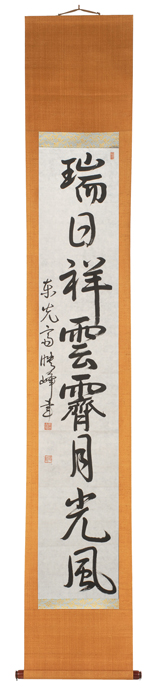 瑞日祥雲霽月光風
東光高暎峰書